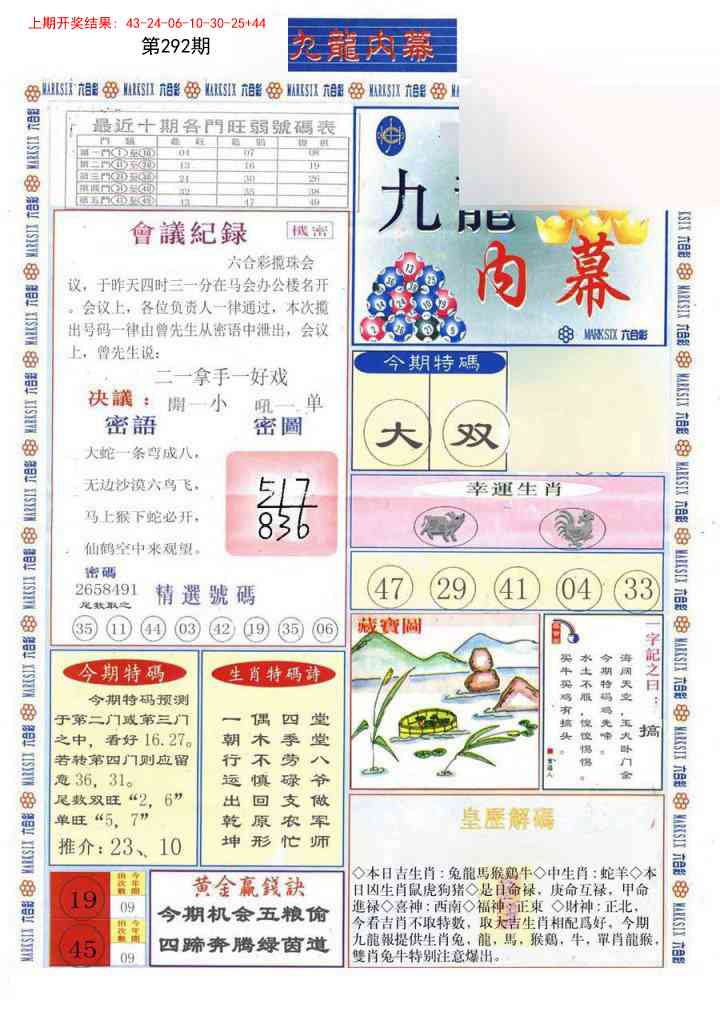 上期开奖结果：43-24-06-10-30-25+44
第292期
九龍内幕
MARKSIX 六合彩
最近十期各門旺弱號碼表
第一門①至⑩ 04 07 08
第二門⑪至⑳ 13 16 19
第三門㉑至㉚ 21 30 26
第四門㉛至㊵ 32 35 38
第五門㊶至㊾ 43 47 49
會議紀録
機密
六合彩搅珠会
议，于昨天四时三一分在马会办公楼名开
。会议上，各位负责人一律通过，本次揽
出号码一律由曾先生从密语中泄出，会议
上，曾先生说：
二一拿手一好戏
决議：開一小 吼一单
密語
密圖
大蛇一条弯成八，
无边沙漠六鸟飞，
马上猴下蛇必开，
仙鹤空中来观望。
517
836
密碼
2658491
足数取之
精選號碼
35 11 44 03 42 19 35 06
九龍
内幕
MARKSIX 六合彩
今期特碼
大 双
幸運生肖
47 29 41 04 33
藏寶圖
一字記之曰：搞
海阔天空，玉犬卧门金
今期特码鸡先啼。
水土不服，惶惶惕惕。
买牛买鸡有搞头。
今期特碼
今期特码预测
于第二门或第三门
之中，看好16.27。
若转第四门则应留
意36，31。
尾数双旺“2，6”
单旺“5，7”
推介：23、10
生肖特碼詩
一朝行运出乾坤
偶木不慎回原形
四季劳碌支农忙
堂堂八爷做军师
皇歷解碼
◇本日吉生肖：兔龍馬猴鷄牛◇中生肖：蛇羊◇本
日凶生肖鼠虎狗猪◇是日命禄，庚命互禄，甲命
進禄◇喜神：西南◇福神：正東 ◇財神：正北，
今看吉肖不取特數，取大吉生肖相配爲好，今期
九龍報提供生肖兔，龍，馬，猴鷄，牛，單肖龍猴，
雙肖兔牛特别注意爆出。
19
今年開出次數
09
45
今年開出次數
09
黄金贏錢訣
今期机会五粮偷
四蹄奔腾绿茵道